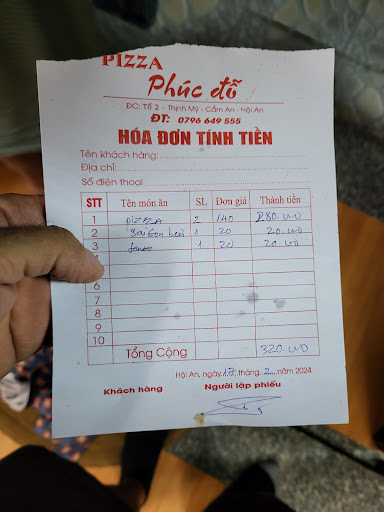 PIZZA
Phúc đỗ
ĐC: Tổ 2 - Thịnh Mỹ - Cẩm An - Hội An
ĐT: 0796 649 555
HÓA ĐƠN TÍNH TIỀN
Tên khách hàng:
Địa chỉ:
Số điện thoại
STT Tên món ăn SL Đơn giá Thành tiền
1 PIZZA 2 140 280.000
2 Sài Gòn 1 20 20.000
3 1 20 20.000
6
7
8
9
10
Tổng Cộng 320.000
Hội An, ngày 17 tháng 2 năm 2024
Khách hàng Người lập phiếu